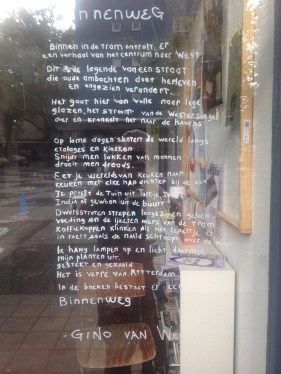 BINNENWEG
Binnen in de tram ontrolt er
een verhaal van het centrum naar West
Dit is de legende van een straat
die oude ambachten doet herleven
en aangezien verandert.
Het gaat hier van volle naar lege
glazen, het stroomt van de Westersingel
over en kronkelt het naar de havens
Op lome dagen slentert de wereld langs
etalages en kiosken
Snijdt men lokken van mannen
draait men dreads.
Eet je wereld van keuken naar
keuken met elke hap dichter bij de
Je proeft de tuin uit
India of gewoon uit de buurt
Dwarsstraten strepen langs en geven
voeding aan de ijzeren nerf van de tram
Koffiekoppen klinken als het lepeltje
in roert zoals de naald schraapt over de
Ik hang lampen op en licht daarmee
mijn planten uit,
gestekt en gezaaid
Het is verre van Rotterdam
In de boeken bestaat er een
Binnenweg
- GINO VAN